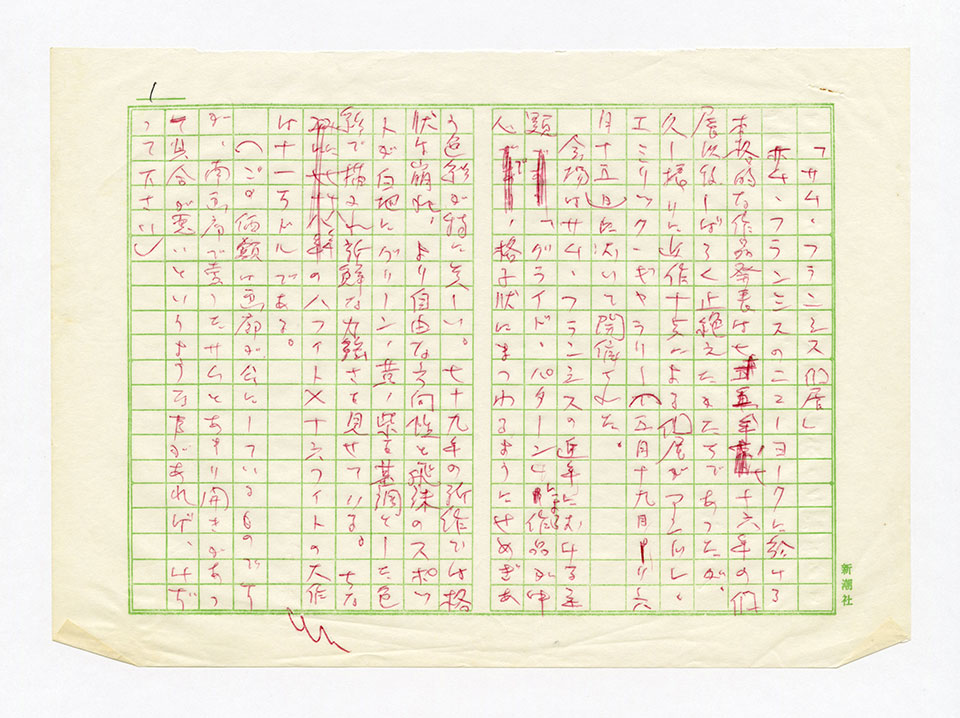 1
「サム・フランシス個展」
サム・フランシスのニューヨークに於ける
本格的な作品発表は七十六年の個
展以後しばらく止絶えたかたちであったが、
久し振りに近作十点による個展がアンドレ・
エミリック・ギャラリー(五月十九日より六
月十五日)に於いて開催された。
会場はサム・フランシスの近年における主
題「グライド・パターン」による作品が中
心で、格子状にまつわるようにせめぎあ
う色彩が特に美しい。七十九年の新作では格
状は崩れ、より自由な方向性と飛沫のスポッ
トが白地にグリーン、黄、紫を基調とした色
彩で描かれ新鮮な力強さを見せている。ちな
みに の八フィート×十六フィートの大作
は十一万ドルである。
(この価額は画廊が公にしているものです
が、南画廊で売ったサムとあまり開きがあっ
て具合が悪いというようなことがあれば、けず
って下さい)
新潮社